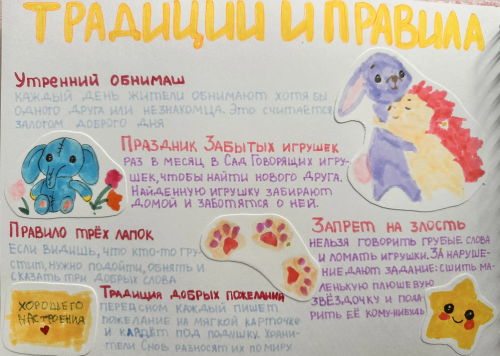 ТРАДИЦИИ И ПРАВИЛА
Утренний обнимаш
Каждый день жители обнимают хотя бы
одного друга или незнакомца. Это считается
залогом доброго дня
Праздник Забытых игрушек
раз в месяц в Сад Говорящих игру-
шек, чтобы найти нового друга.
Найденную игрушку забирают
домой и заботятся о ней.
Правило трёх лапок
Если видишь, что кто-то гру-
стит, нужно подойти, обнять и
сказать три добрых слова
Запрет на злость
нельзя говорить грубые слова
и ломать игрушки. За наруше-
ние дают задание: сшить ма-
ленькую плюшевую
звёздочку и пода-
рить её кому-нибудь
Традиция добрых пожелания
Перед сном каждый пишет
пожелание на мягкой карточке
и кладёт под подушку. Храни-
тели Снов разносят их по миру
ХОРОШЕГО
НАСТРОЕНИЯ